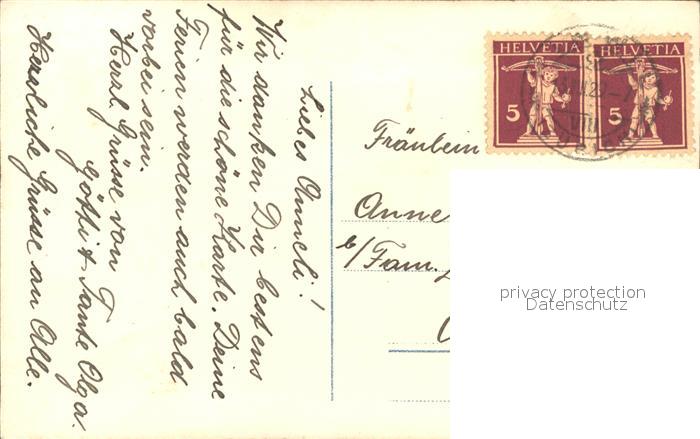 Liebes Anneli!
Wir danken Dir bestens
für die schöne Karte. Deine
Ferien werden auch bald
vorbei sein.
Herzl. Grüsse von
Götti & Tante Olga.
Herzliche Grüsse an Alle.
HELVETIA
5
HELVETIA
5
Fräulein
Anne
b/Fam.
privacy protection
Datenschutz